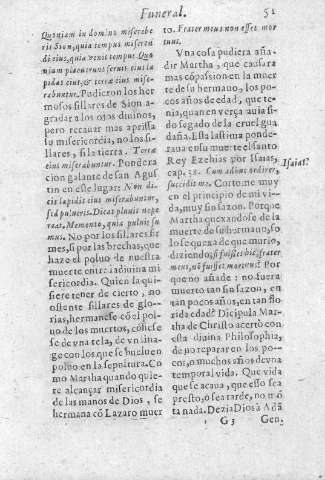 Funeral. 51
Quoniam in domino misereberis Sion, quia tempus miserendi
di eius, quia venit tempus. Quoniam
niam placuerunt seruis eius lapides
pidas eius, & terræ eius miserebuntur.
rebuntur. Pudieron los hermosos
mosos sillares de Sion agradar
gradar a los ojos diuinos,
pero recauar mas aprissa
su misericordia, no los sillares,
llares, si la tierra. Terræ
eius miserebuntur. Ponderacion
cion galante de san Agustin
tin en este lugar: Non dicit
cis lapidis eius miserebuntur,
sed pulueris. Dicas pluuis nepereas.
reas. Memento, quia puluis sumus.
mus. No por los sillares firmes,
mes, si por las brechas, que
haze el poluo de nuestra
muerte entra la diuina misericordia.
sericordia. Quien la quisiere
siere tener de cierto, no
ostente sillares de glorias,
rias, hermanese cõ el poluo
uo de los muertos, cõfiesese
se de vna tela, de vn linage
ge con los que se bueluen
poluo en la sepultura. Como
mo Martha quando quiere
re alcançar misericordia
de las manos de Dios, se
hermana cõ Lazaro muerto.
to. Frater meus non esset mortuus.
tuus.
Vna cosa pudiera añadir
dir Martha, que causara
mas cõpassion en la muerte
de su hermano, los pocos
cos años de edad, que tenia,
nia, quan en verça auia sido
segado de la cruel guadaña.
daña. Esta lastima ponderana
rana en su muerte el santo
Rey Ezehias por Isaias,
cap. 38. Cum adhuc ordirer,
succedit me. Cortome muy
en el principio de mi vida,
da, muy sin sazon. Porque
Martha quexandose de la
muerte de su hermano, solo
lo se quexa de que murio,
diziendo, si fuisses hic, frater
meus, nõ fuisset mortuus? Por
que no añade: no fuera
muerto tan sin sazon, en
tan pocos años, en tan florida
rida edad? Dicipula Martha
de Christo acertò con
esta diuina Philosophia,
de no reparar en los pocos,
cos, o muchos años de vna
temporal vida. Que vida
que se acaua, que esso sea
presto, o sea tarde, no môta
ta nada. Dezia Dios à Adã
Isaias?
G3 Gen.